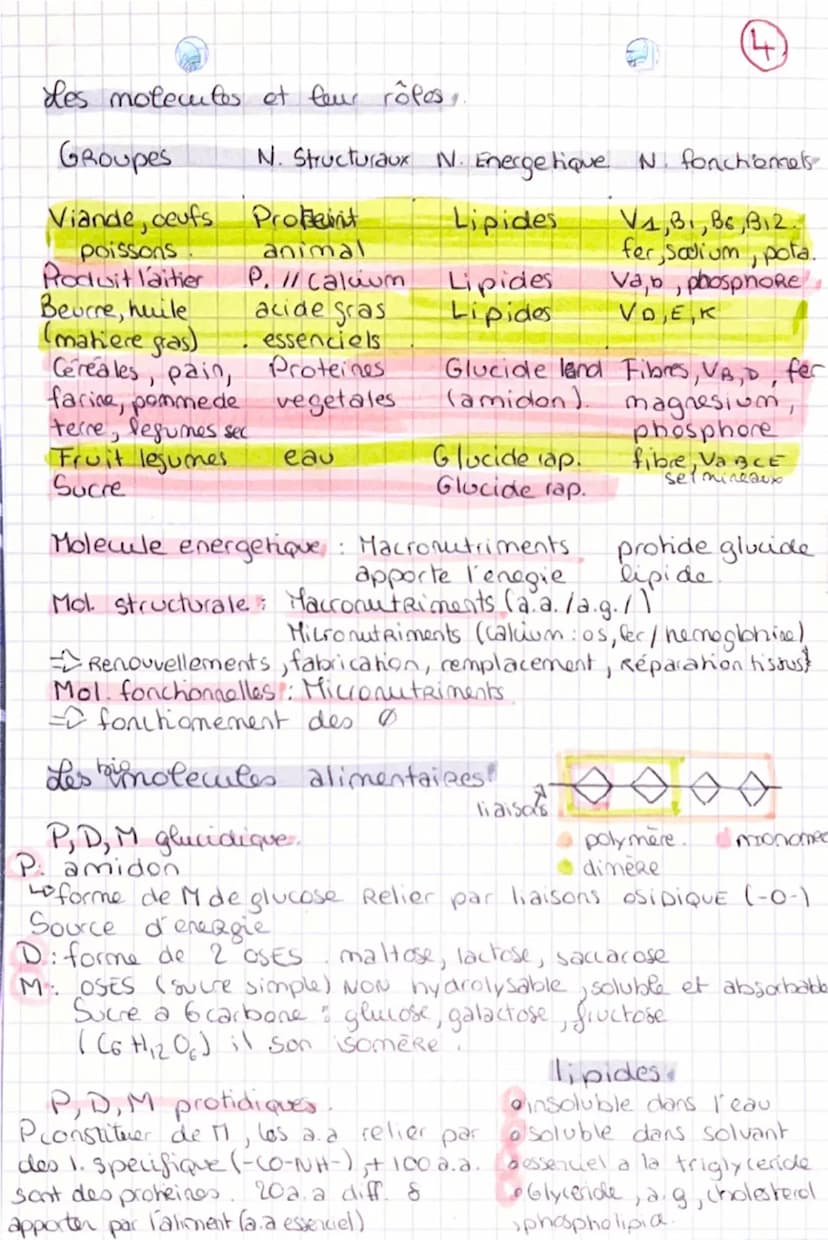 4
Les molecules et leur rôles.
GROUPES N. Structuraux N. Energetique N. fonctionnels
Viande, oeufs Proteint Lipides VA, B1, B6, B12.
poissons. animal fer, sodium, pota.
Produit laitier P. // calcium Lipides Va,D, phosphoRe
Beurre, huile acide gras Lipides VD,E,K
(matiere gras). essenciels
Céréales, pain, Proteines Glucide lend Fibres, VB,D, fer
farine, pomme de vegetales (amidon). magnesium,
terre, legumes sec phosphore
Fruit legumes eau Glucide rap. fibre, Va B C E
Sucre Glucide rap. sel mineaux
Molecule energetique : Macronutriments protide glucide
apporte l'enegie lipide.
Mol. structurale : Macronutriments (a.a./a.g./)
Micronutriments (calcium : os, fer/hemoglobine)
=> Renouvellements, fabrication, remplacement, Réparation tissus
Mol. fonctionnelles : Micronutriments
=> fonctionement des Ø
Les biomolecules alimentaires
liaisons
P, D, M glucidique. polymère. monomère
P: amidon dimère
↳ forme de M de glucose Relier par liaisons OSIDIQUE (-O-)
Source d'energie
D : forme de 2 OSES. maltose, lactose, saccacose
M : OSES (sucre simple) NON hydrolysable, soluble et absorbable
Sucre a 6 carbone : glucose, galactose, fructose
(C6 H12 O6) il son isomère.
lipides.
P, D, M protidiques. insoluble dans l'eau
P constituer de M, les a.a relier par soluble dans solvant
des l. specifique (-CO-NH-), + 100 a.a. essenciel a la triglyceride
sont des proteines. 20 a.a diff. 8 Glyceride, a.g, cholesterol
apporter par l'aliment (a.a essenciel) , phospholipid.